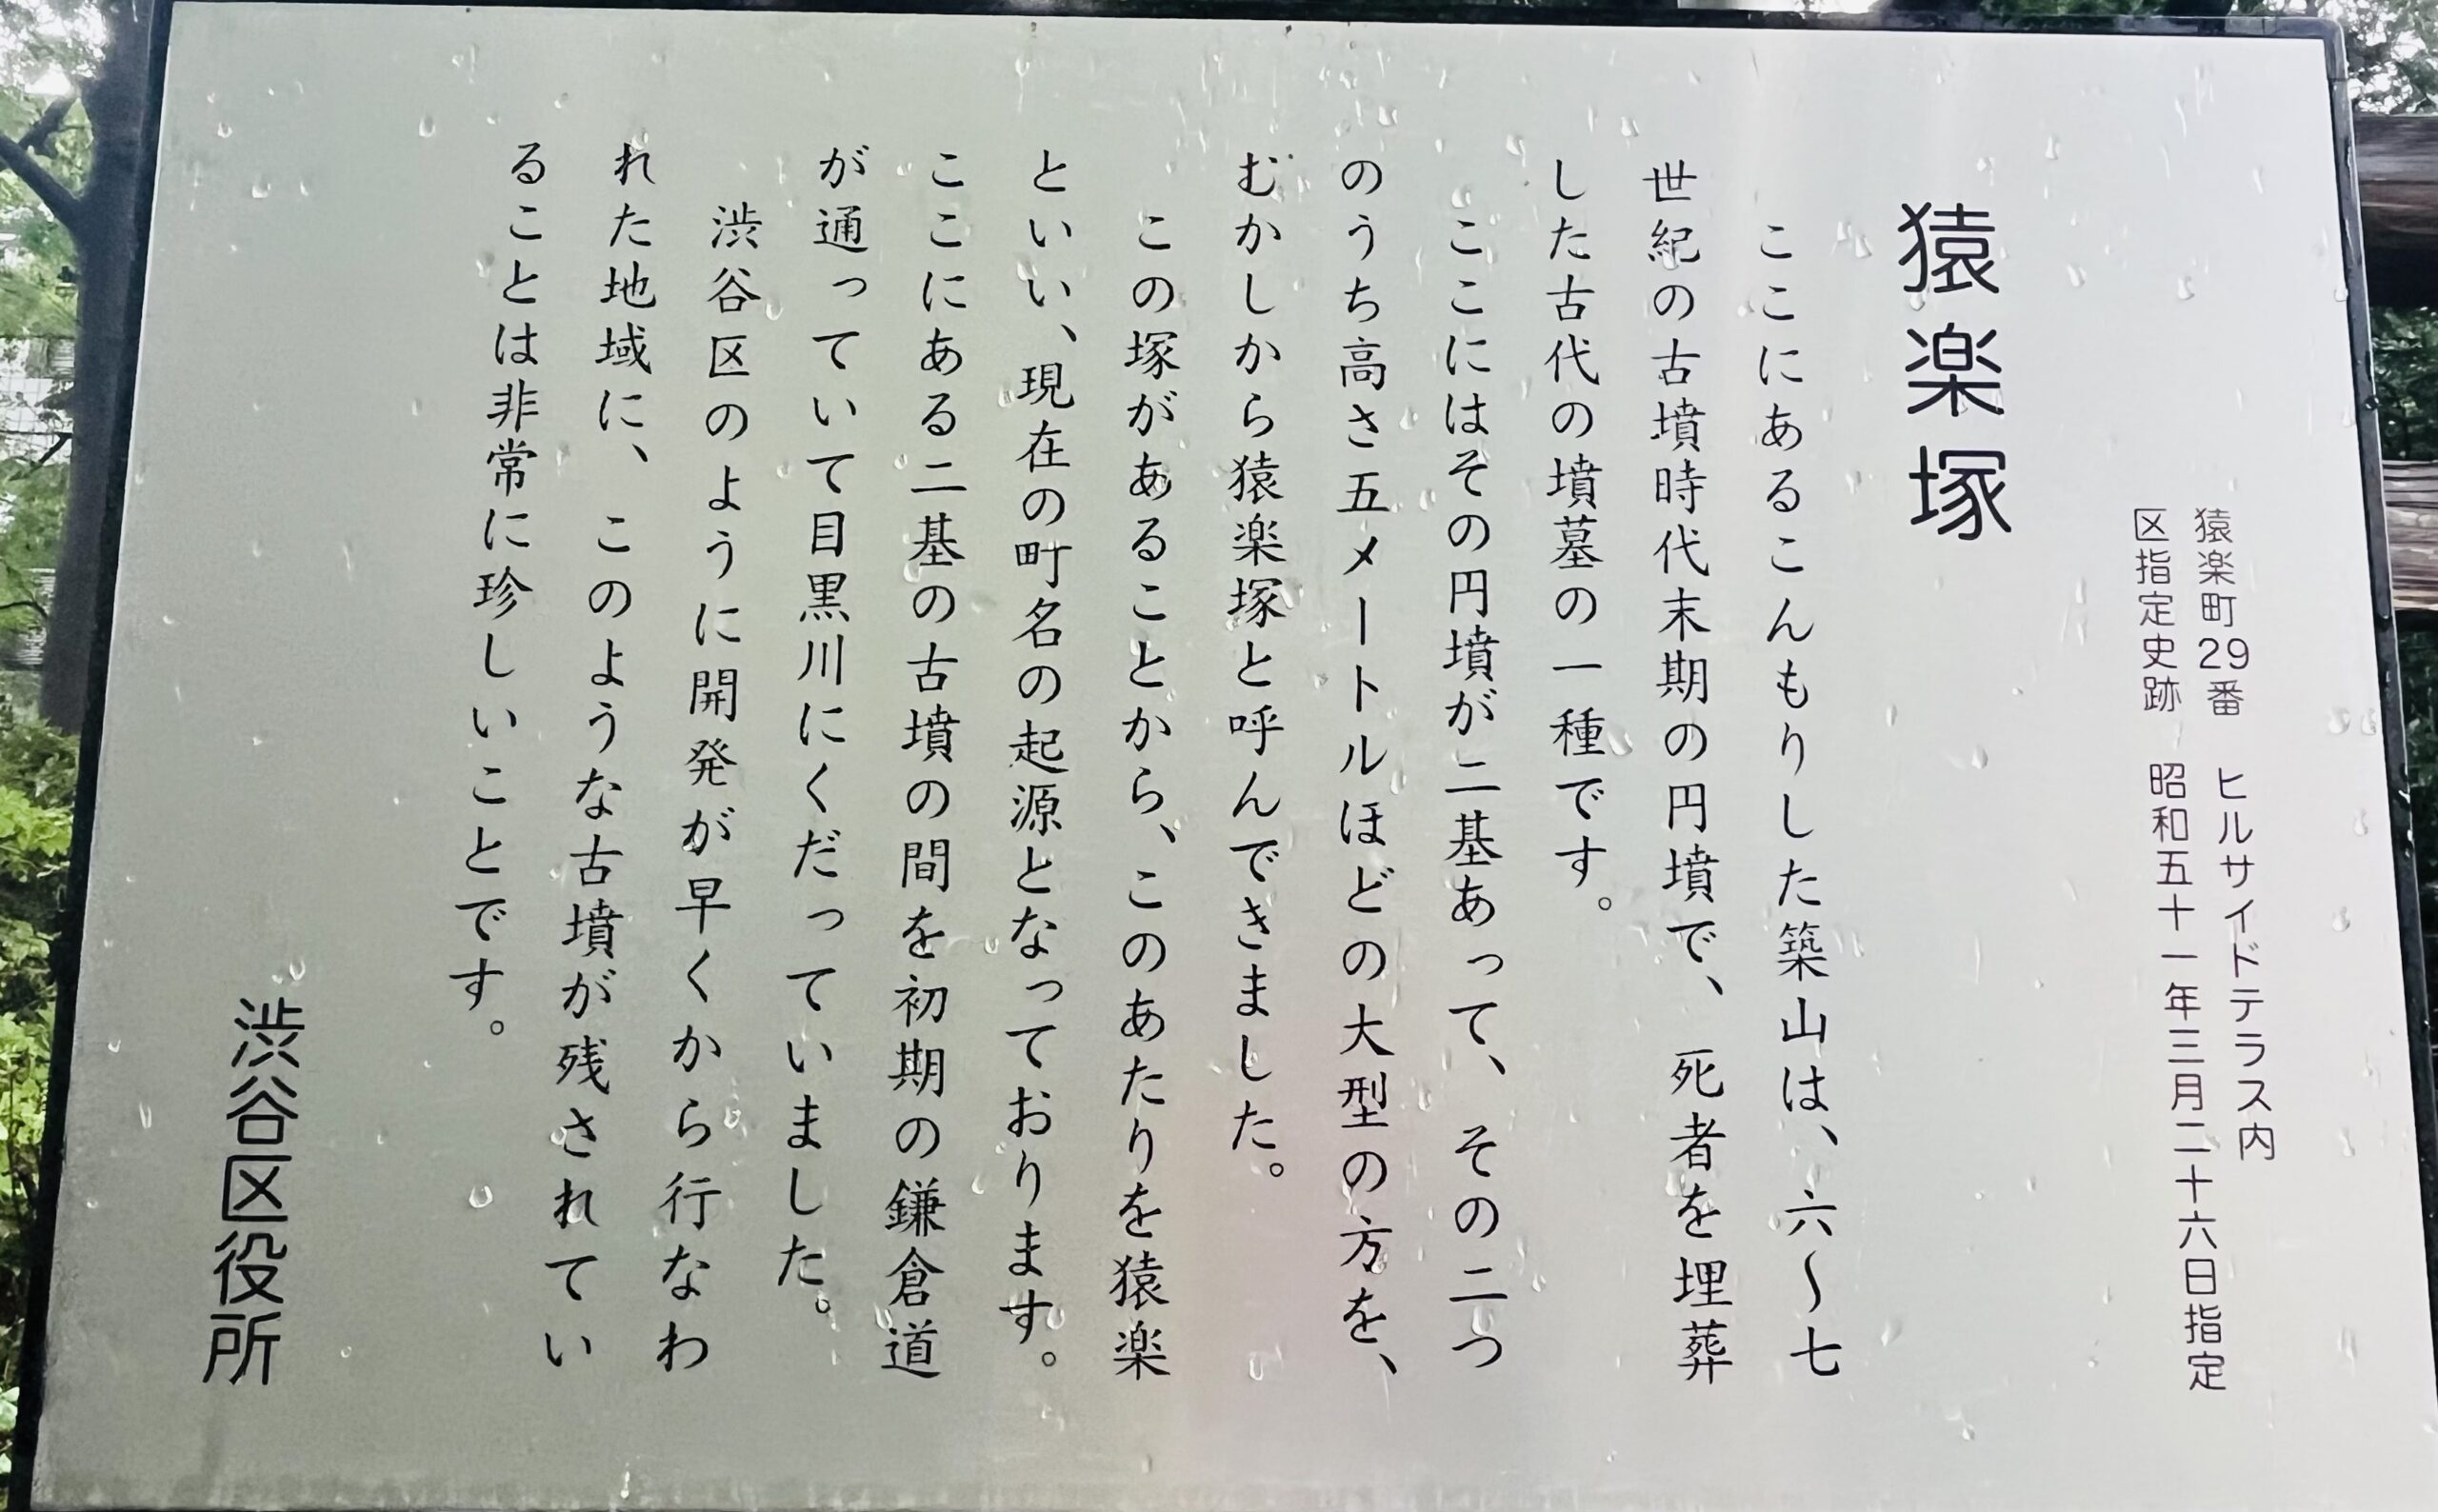 猿楽町29番 ヒルサイドテラス内
区指定史跡 昭和五十一年三月二十六日指定
猿楽塚
ここにあるこんもりした築山は、六～七
世紀の古墳時代末期の円墳で、死者を埋葬
した古代の墳墓の一種です。
ここにはその円墳が二基あって、その二つ
のうち高さ五メートルほどの大型の方を、
むかしから猿楽塚と呼んできました。
この塚があることから、このあたりを猿楽
といい、現在の町名の起源となっております。
ここにある二基の古墳の間を初期の鎌倉道
が通っていて目黒川にくだっていました。
渋谷区のように開発が早くから行なわ
れた地域に、このような古墳が残されてい
ることは非常に珍しいことです。
渋谷区役所